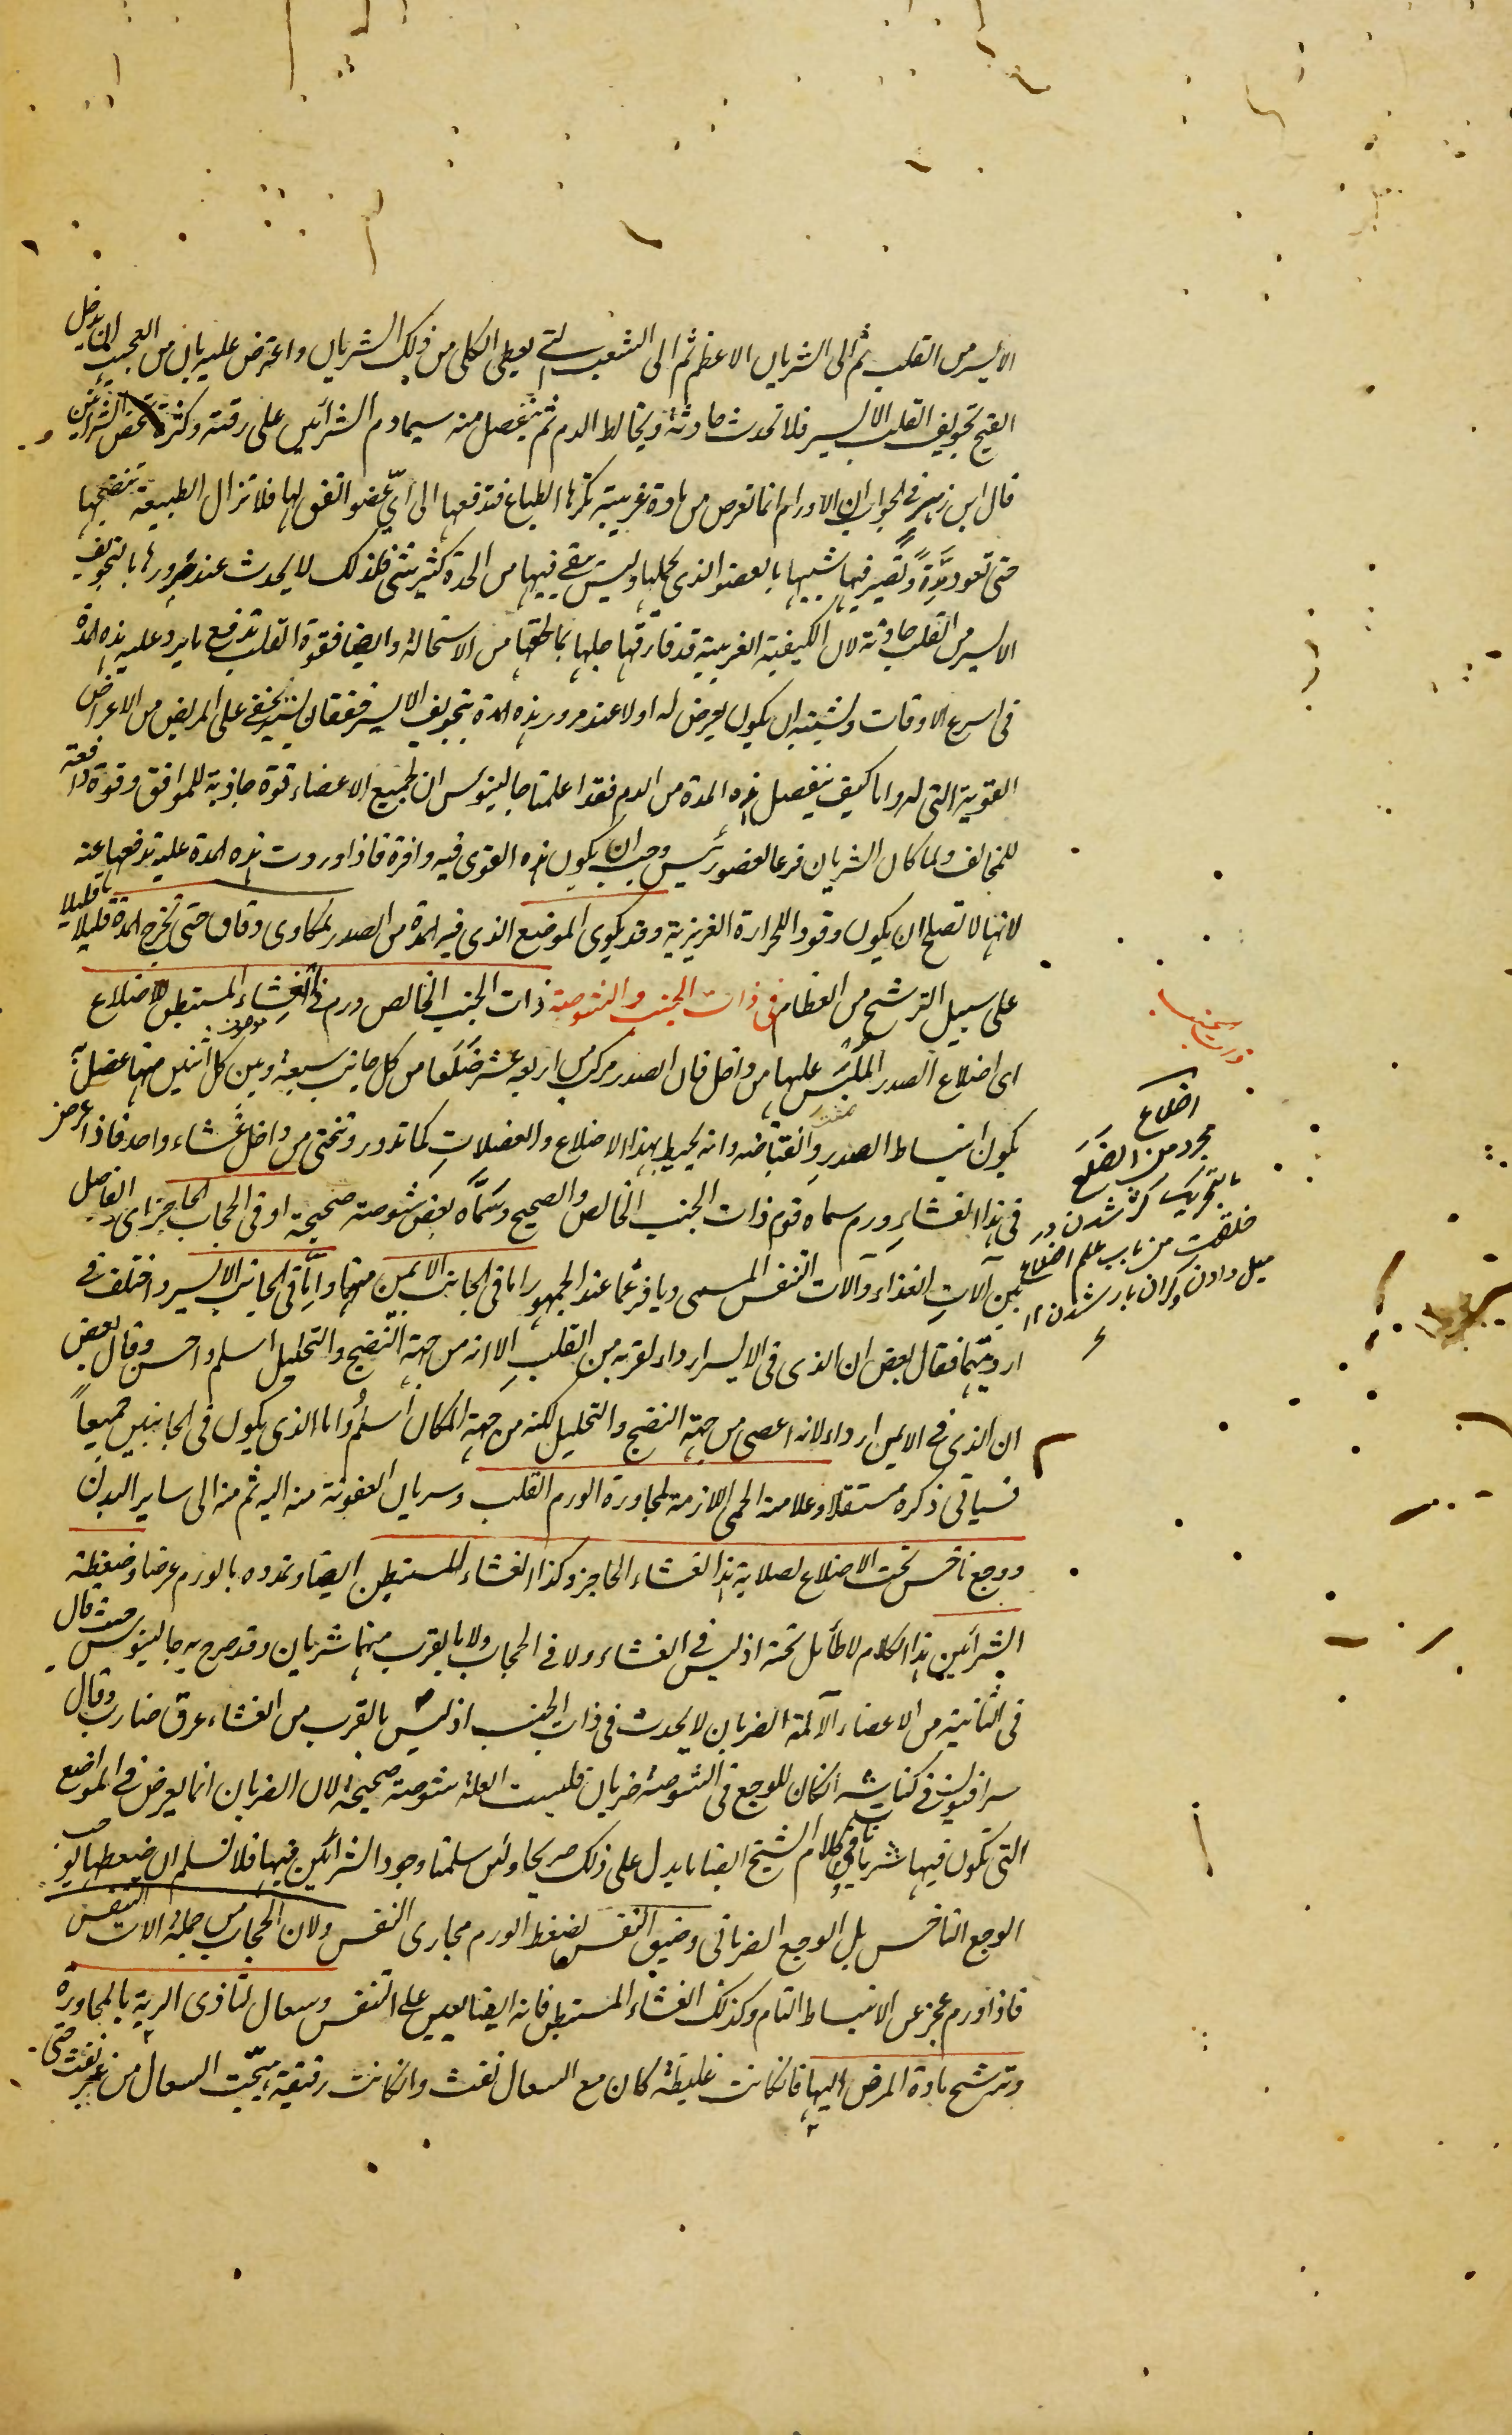 الأيسر من القلب ثم الى الشريان الاعظم ثم الى الشعب التي يعطي الكلى من ذلك الشريان واعترض عليه بان من العجب ان يدخل
القيح تجويف القلب الايسر فلا تحدث حادثة ويخالط الدم ثم ينفصل منه سيما دم الشرائين على رقته وكثرة تمخض الشرائين
قال ابن زهير في الجواب ان الاورام انما تعرض من مادة غريبة تكرهها الطباع فتدفعها الى أيّ عضو اتفق لها فلا تزال الطبيعة تنضجها
حتى تعود مِدَّةً وتصير فيها شبيها بالعضو الذي يحملها وليس يبقى فيها من الحدة كثير شئ فلذلك لا يحدث عند مرورها بالتجويف
الايسر من القلب حادثة لان الكيفية الغريبة قد فارقتها جلها بما لحقها من الاستحالة وايضا فقوة القلب تدفع ما يرد عليه هذه المدة
في اسرع الاوقات ويشبه ان يكون يعرض له اولا عند مرور هذه المدة بتجويف الايسر خفقان يسير يخفى على المريض من الاعراض
القوية التي له واما كيف ينفصل هذه المدة من الدم فقد اعلمنا جالينوس ان لجميع الاعضاء قوة جاذبة للموافق وقوة دافعة
للمخالف ولما كان الشريان فرعا لعضو رئيس وجب ان يكون هذه القوى فيه وافرة فاذا وردت هذه المدة عليه تدفعها عنه
لانها لا تصلح ان يكون وقودا للحرارة الغريزية وقد يكوى الموضع الذي فيه المدة من الصدر بمكاوى دقاق حتى تخرج المدة قليلا قليلا
على سبيل الترشح من العظام في ذات الجنب والشوصة ذات الجنب الخالص ورم في الغِشاء المستبطن للاضلاع
اى اضلاع الصدر المُلَبَّس عليها من داخل فان الصدر مركب من اربعة عشر ضلعا من كل جانب سبعة وبين كل اثنين منها عضلٌ
يكون انبساط الصدر وانقباضه وانه يحيط بهذا الاضلاع والعضلات كما تدور وتنحنى من داخل غشاء واحد فاذا عرض
في هذا الغشاء ورم سماه قوم ذات الجنب الخالص والصحيح وسَمَّاه بعض شوصة صحيحة او في الحجاب الحاجز اى الفاصل
بين آلات الغذاء وآلات التنفس المسمى ديافرغما عند الجمهور اما في الجانب الايمن منهما واِمَّا في الجانب الايسر واختلف في
اردئيتهما فقال بعض ان الذي في الايسر ارداء لقربه من القلب الا انه من جهة النضج والتحليل اسلم واحسن وقال بعض
ان الذي في الايمن ارداء لانه اعصى من جهة النضج والتحليل لكنه من جهة المكان أسلمُ واما الذي يكون في الجانبين جميعاً
فسياتى ذكره مستقلا وعلامته الحمى اللازمة لمجاورة الورم القلب وسريان العفونة منه اليه ثم منه الى ساير البدن
ووجع ناخس تحت الاضلاع لصلابة هذا الغشاء الحاجز وكذا الغشاء المستبطن ايضا وتمدده بالورم عرضا وضغطه
الشرائين هذا الكلام لا طائل تحته اذ ليس في الغشاء ولا في الحجاب ولا بالقرب منهما شريان وقد صرح به جالينوس حيث قال
في الثانية من الاعضاء الآلمة الضربان لا يحدث في ذات الجنب اذ ليس بالقرب من الغشاء عرق ضارب وقال
سرافيون في كناشه ان كان للوجع في الشوصة ضربان فليست العلة شوصة صحيحة لان الضربان انما يعرض في المواضع
التي تكون فيها شريان وفي كلام الشيخ ايضا ما يدل على ذلك صريحا ولئن سلمنا وجود الشرائين فيها فلا نسلم ان ضغطها يوجب
الوجع الناخس بل الوجع الضربانى وضيق النفس لضغط الورم مجارى النفس ولان الحجاب من جملة الات التنفس
فاذا ورم عجز عن الانبساط التام وكذلك الغشاء المستبطن فانه ايضا يعين على التنفس وسعال لتاذى الرية بالمجاورة
وترشح مادة المرض اليها فان كانت غليظة كان مع السعال نفث وان كانت رقيقة هيّجت السعال من غير نفث حتى
ذات الجنب
اضلاع
مجرد من الضلع
بالتحريك كژ شدن در
خلقت من باب علم اضلاع
ميل دادن وگران بار شدن ١٢